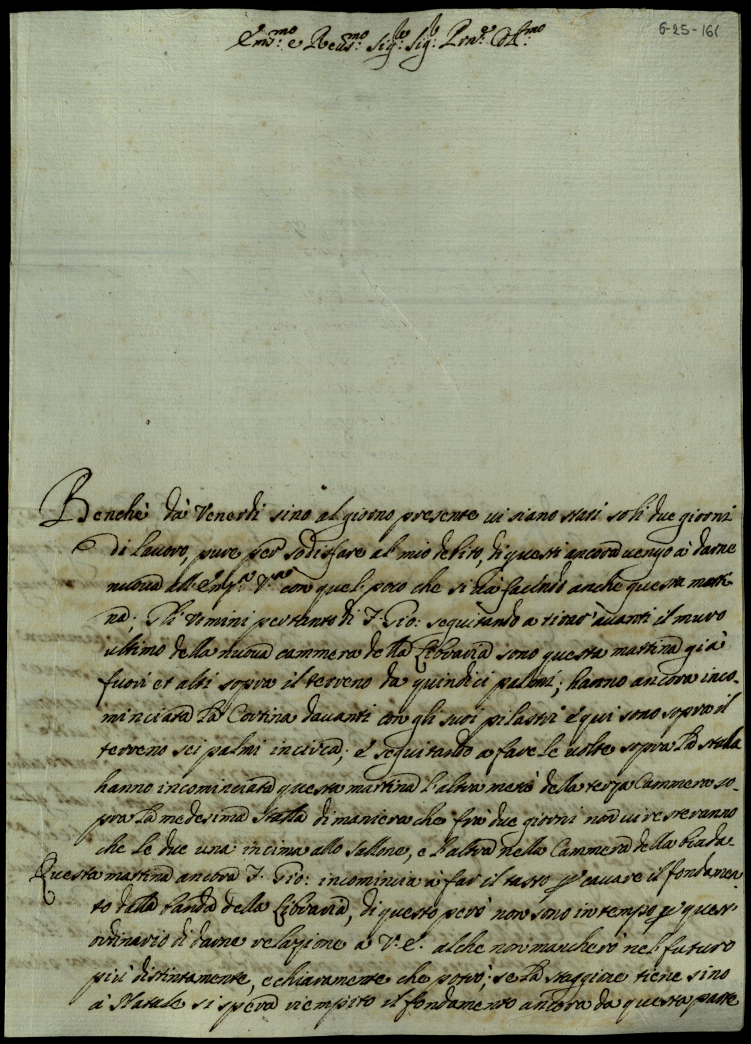 6-25-161
Em.mo e Reu.mo Sig.r Sig.r Prn.e
Benche dà Venerdi sino al giorno presente ui siano stati soli due giorni
di lauoro, pure per sodisfare al mio debito, di questi ancora uengo à darne
nuoua all'Em.a V.ra con quel poco che si uà facendo anche questa matti-
na; Gli Vomini pertanto di F. Gio: seguitando a tirar auanti il muro
ultimo della nuoua cammera della Libraria sono questa mattina già
fuori et alti sopra il terreno da quindici palmi; hanno ancora inco-
minciata La Cortina dauanti con gli suoi pilastri è qui sono sopra il
terreno sei palmi incirca; è seguitando a fare Le uolte sopra La stalla
hanno incominciata questa mattina l'altra metà della terza Cammera so-
pra La medesima stalla di maniera che frà due giorni non ui resteranno
che le due una incima allo sallone, e l'altra nella Cammera della biada.
Questa mattina ancora F. Gio: incomincia à far il tasto p cauare il fondamen
to dalla banda della Libraria, di questo però non sono in tempo p quest'
ordinario di darne relazione a V. E. al che non mancherò nel futuro
più distintamente, e chiaramente che potrò; se La staggione tiene sino
à Natale si spera riempito il fondamento ancora da questa parte